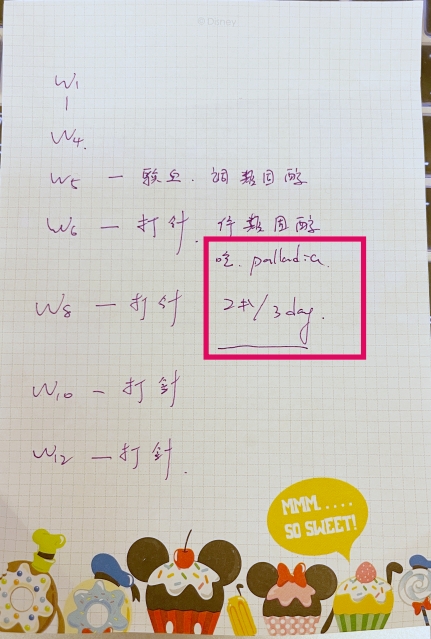 © Disney
W1
|
W4.
W5 — 驗血. 調類固醇
W6 — 打針. 停類固醇
吃. palladia.
W8 — 打針 2#/3 day.
W10 — 打針
W12 — 打針.
MMM.....
SO SWEET!